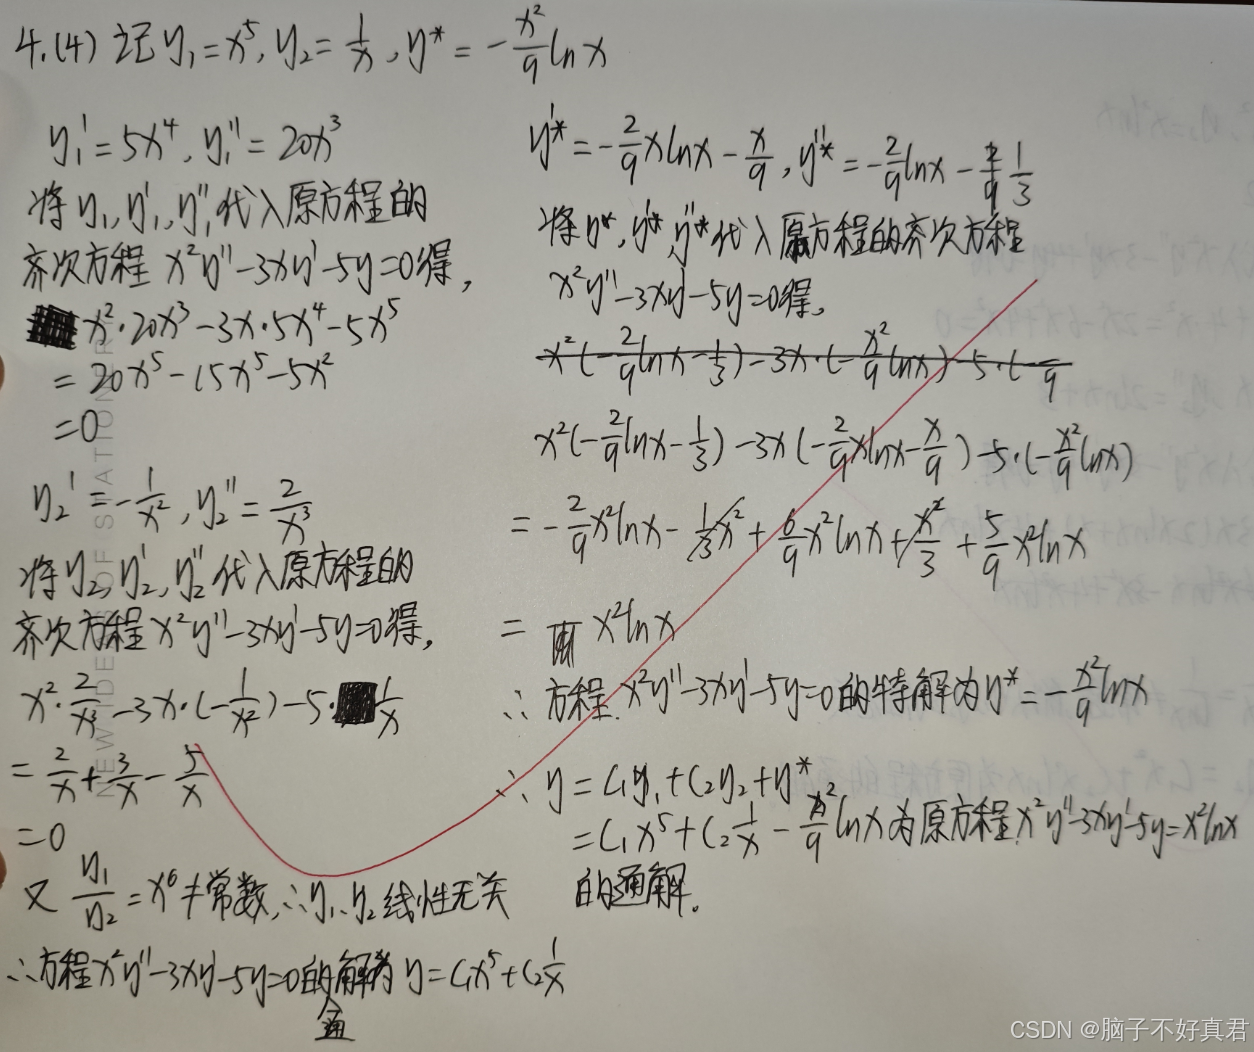 4.(4) 记 y₁=x⁵, y₂=1/x, y*=-x²/9 lnx
y₁'=5x⁴, y₁''=20x³
将 y₁, y₁', y₁'' 代入原方程的
齐次方程 x²y''-3xy'-5y=0得,
x²·20x³-3x·5x⁴-5x⁵
=20x⁵-15x⁵-5x²
=0
y₂'=-1/x², y₂''=2/x³
将 y₂, y₂', y₂'' 代入原方程的
齐次方程 x²y''-3xy'-5y=0得,
x²·2/x³-3x·(-1/x²)-5·1/x
=2/x+3/x-5/x
=0
又 y₁/y₂=x⁶≠常数,∴y₁、y₂线性无关
∴方程x²y''-3xy'-5y=0的解为 y=C₁x⁵+C₂1/x
通
y'*=-2/9 xlnx-x/9, y''*=-2/9 lnx-1/3
将 y*, y'*, y''* 代入原方程的齐次方程
x²y''-3xy'-5y=0得,
x²(-2/9 lnx-1/3)-3x·(-x²/9 lnx)-5·(-/9
x²(-2/9 lnx-1/3)-3x(-2/9 xlnx-x/9)-5·(-x²/9 lnx)
=-2/9 x²lnx-1/3 x²+6/9 x²lnx+x²/3+5/9 x²lnx
= x²lnx
∴方程 x²y''-3xy'-5y=0的特解为y*=-x²/9 lnx
∴ y=C₁y₁+C₂y₂+y*
=C₁x⁵+C₂1/x-x²/9 lnx为原方程x²y''-3xy'-5y=x²lnx
的通解.
NEWWIDE OF STATIONER
CSDN @脑子不好真君